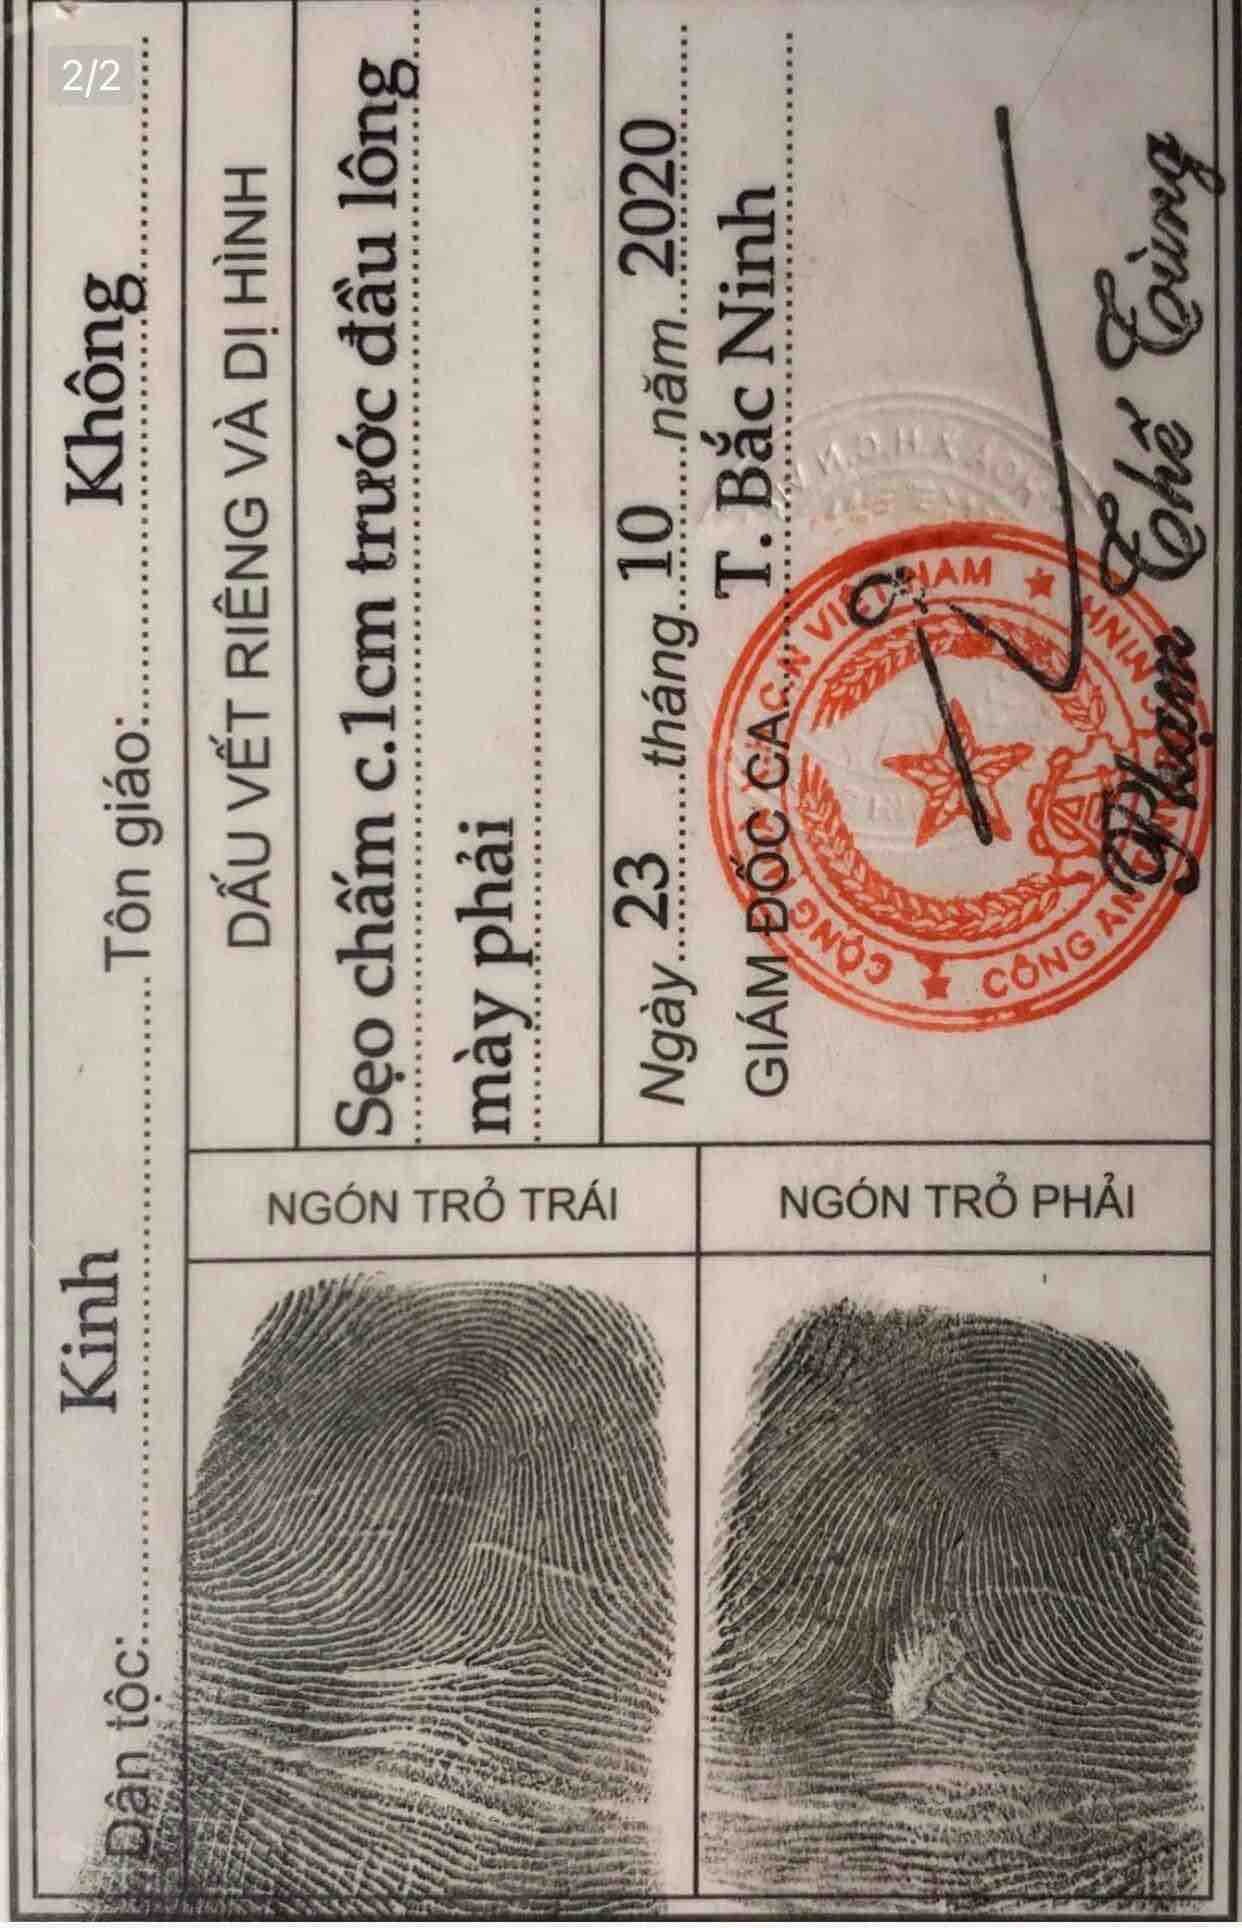 2/2
Dân tộc: Kinh Tôn giáo: Không
DẤU VẾT RIÊNG VÀ DỊ HÌNH
Sẹo chấm c.1cm trước đầu lông
mày phải
Ngày 23 tháng 10 năm 2020
GIÁM ĐỐC CA T. Bắc Ninh
VIỆT NAM
CỘNG
CÔNG AN
NINH
Phạm Thế Tùng
NGÓN TRỎ TRÁI
NGÓN TRỎ PHẢI